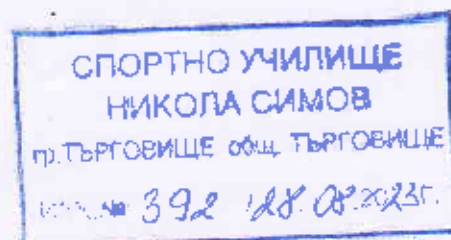 СПОРТНО УЧИЛИЩЕ
НИКОЛА СИМОВ
гр. ТЪРГОВИЩЕ общ. ТЪРГОВИЩЕ
№ 392 / 28.08.2023г.